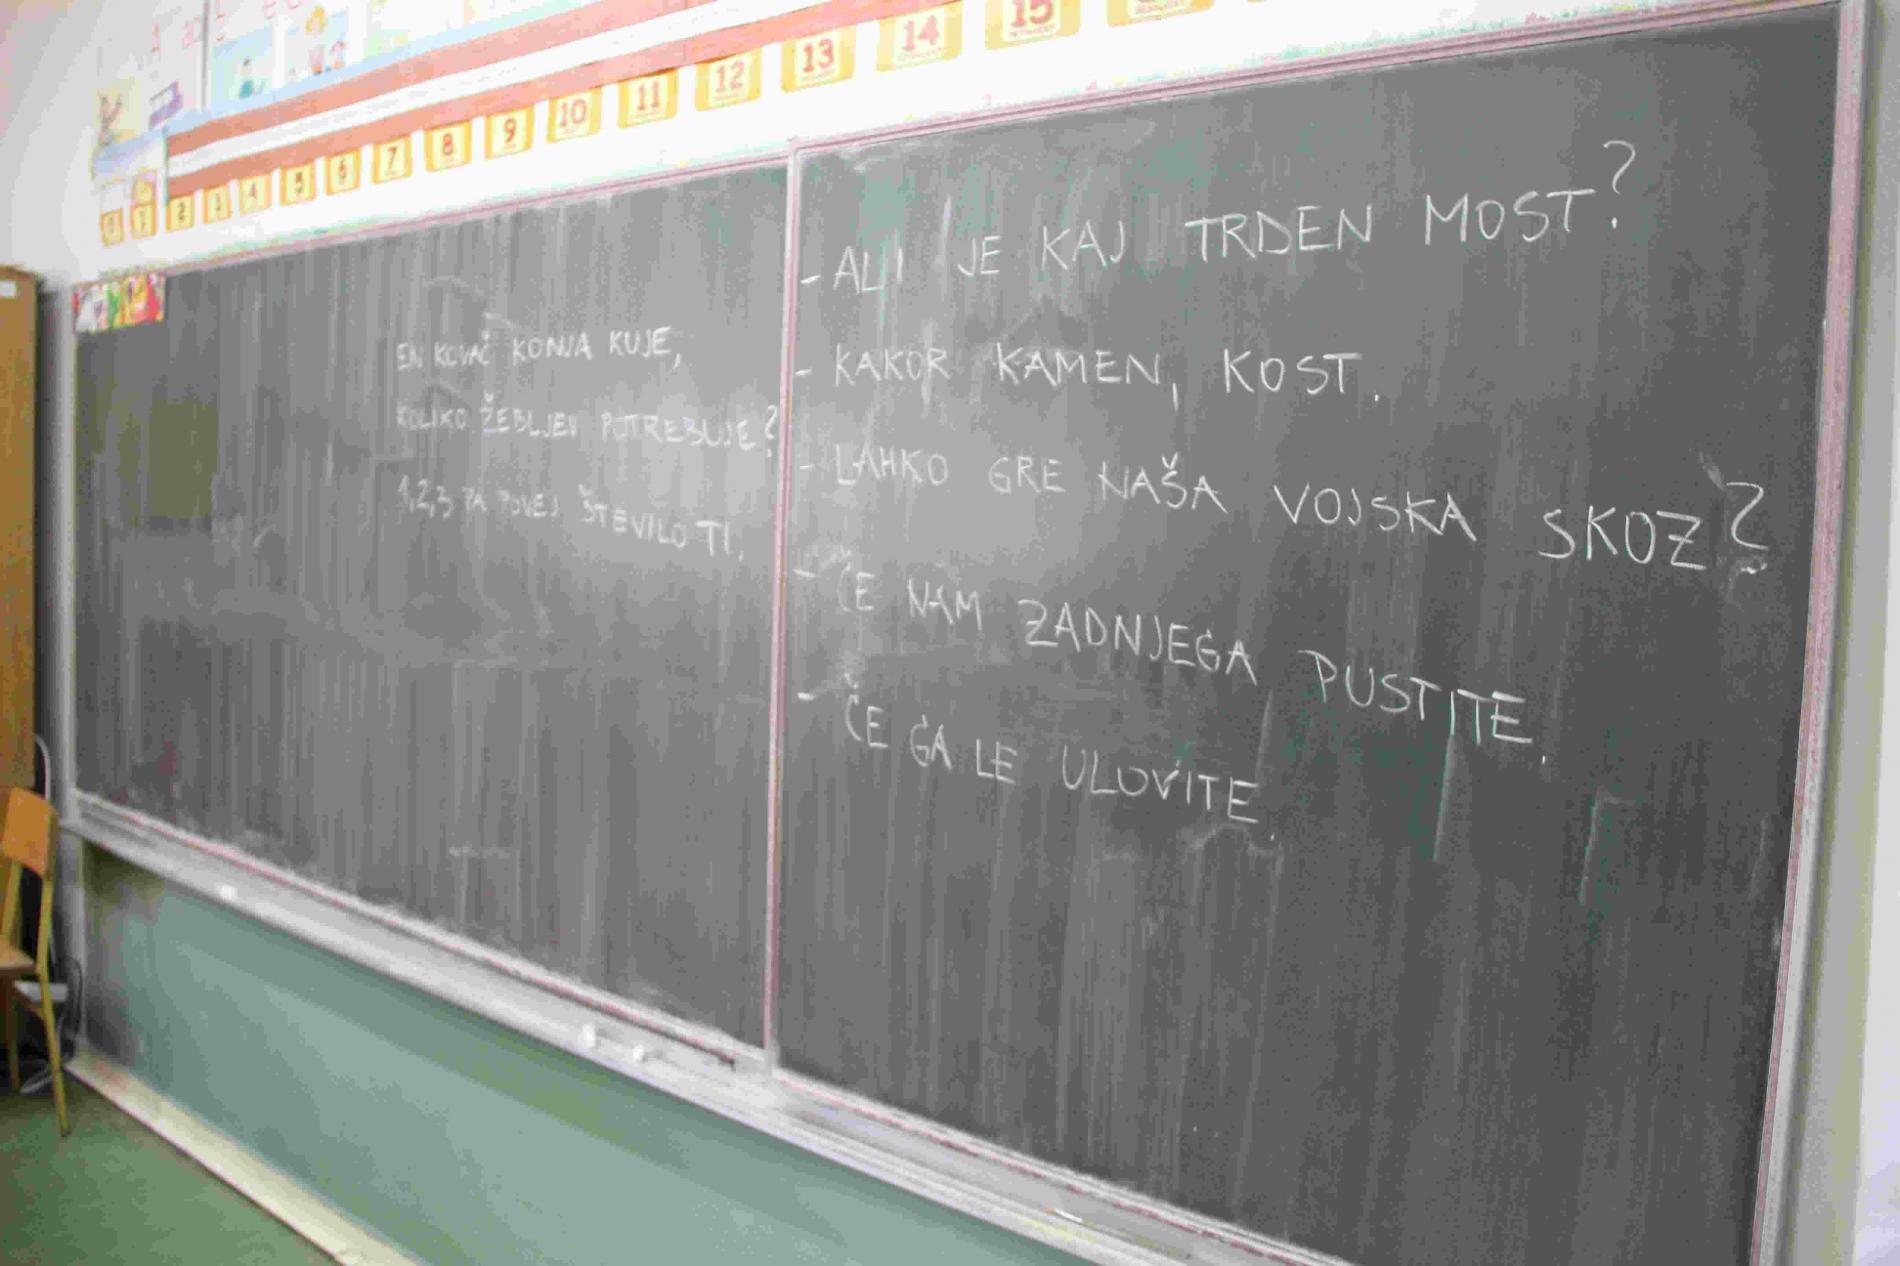 0
1
2
3
4
5
6
7
8
9
10
11
12
13
14
15
EN KOVAČ KONJA KUJE,
KOLIKO ŽEBLJEV POTREBUJE?
1,2,3 PA POVEJ ŠTEVILO TI.
- ALI JE KAJ TRDEN MOST?
- KAKOR KAMEN, KOST.
- LAHKO GRE NAŠA VOJSKA SKOZ?
- ČE NAM ZADNJEGA PUSTITE.
- ČE GA LE ULOVITE.